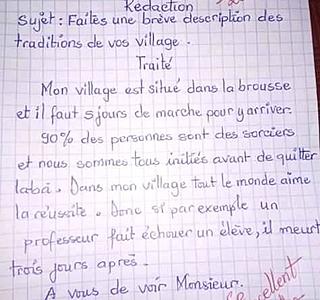 Rédaction
Sujet : Faites une brève description des
traditions de vos village.
Traité
Mon village est situé dans la brousse
et il faut 5 jours de marche pour y arriver.
90% des personnes sont des sorciers
et nous sommes tous initiés avant de quitter
labá. Dans mon village tout le monde aime
la réussite. Donc si par exemple un
professeur fait échouer un élève, il meurt
trois jours après.
A vous de voir Monsieur.
Excellent